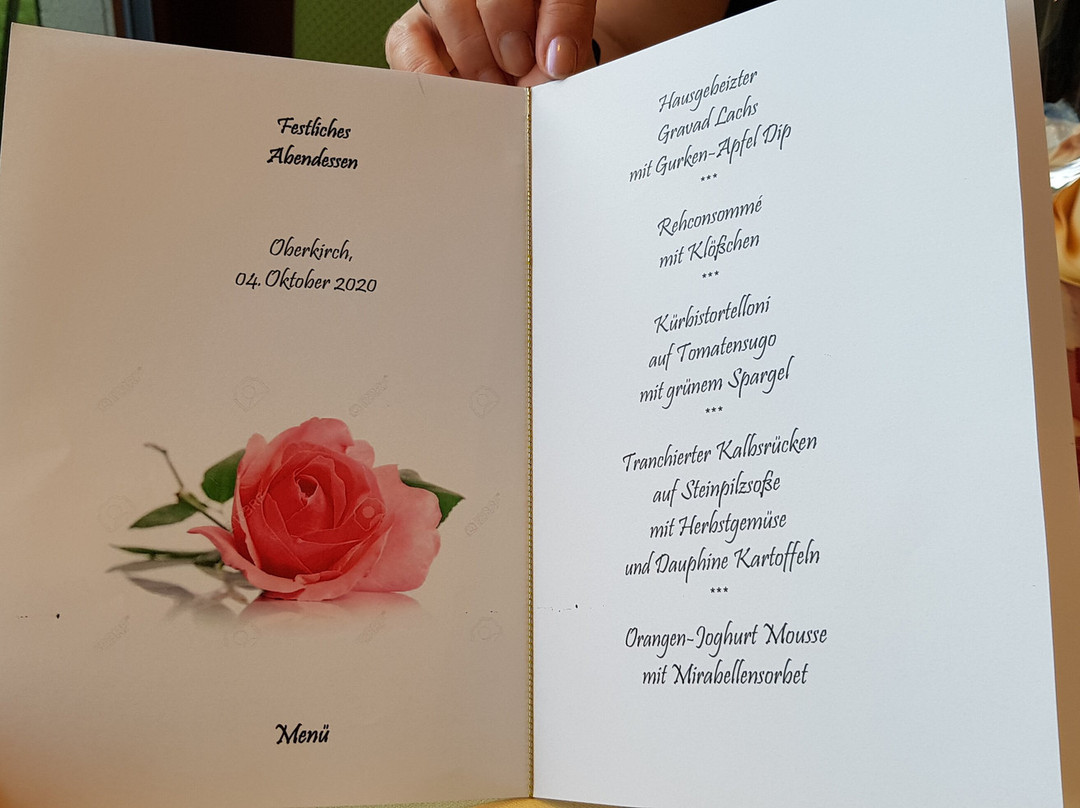 Festliches
Abendessen
Oberkirch,
04. Oktober 2020
Menü
Hausgebeizter
Gravad Lachs
mit Gurken-Apfel Dip
***
Rehconsommé
mit Klößchen
***
Kürbistortelloni
auf Tomatensugo
mit grünem Spargel
***
Tranchierter Kalbsrücken
auf Steinpilzsoße
mit Herbstgemüse
und Dauphine Kartoffeln
***
Orangen-Joghurt Mousse
mit Mirabellensorbet